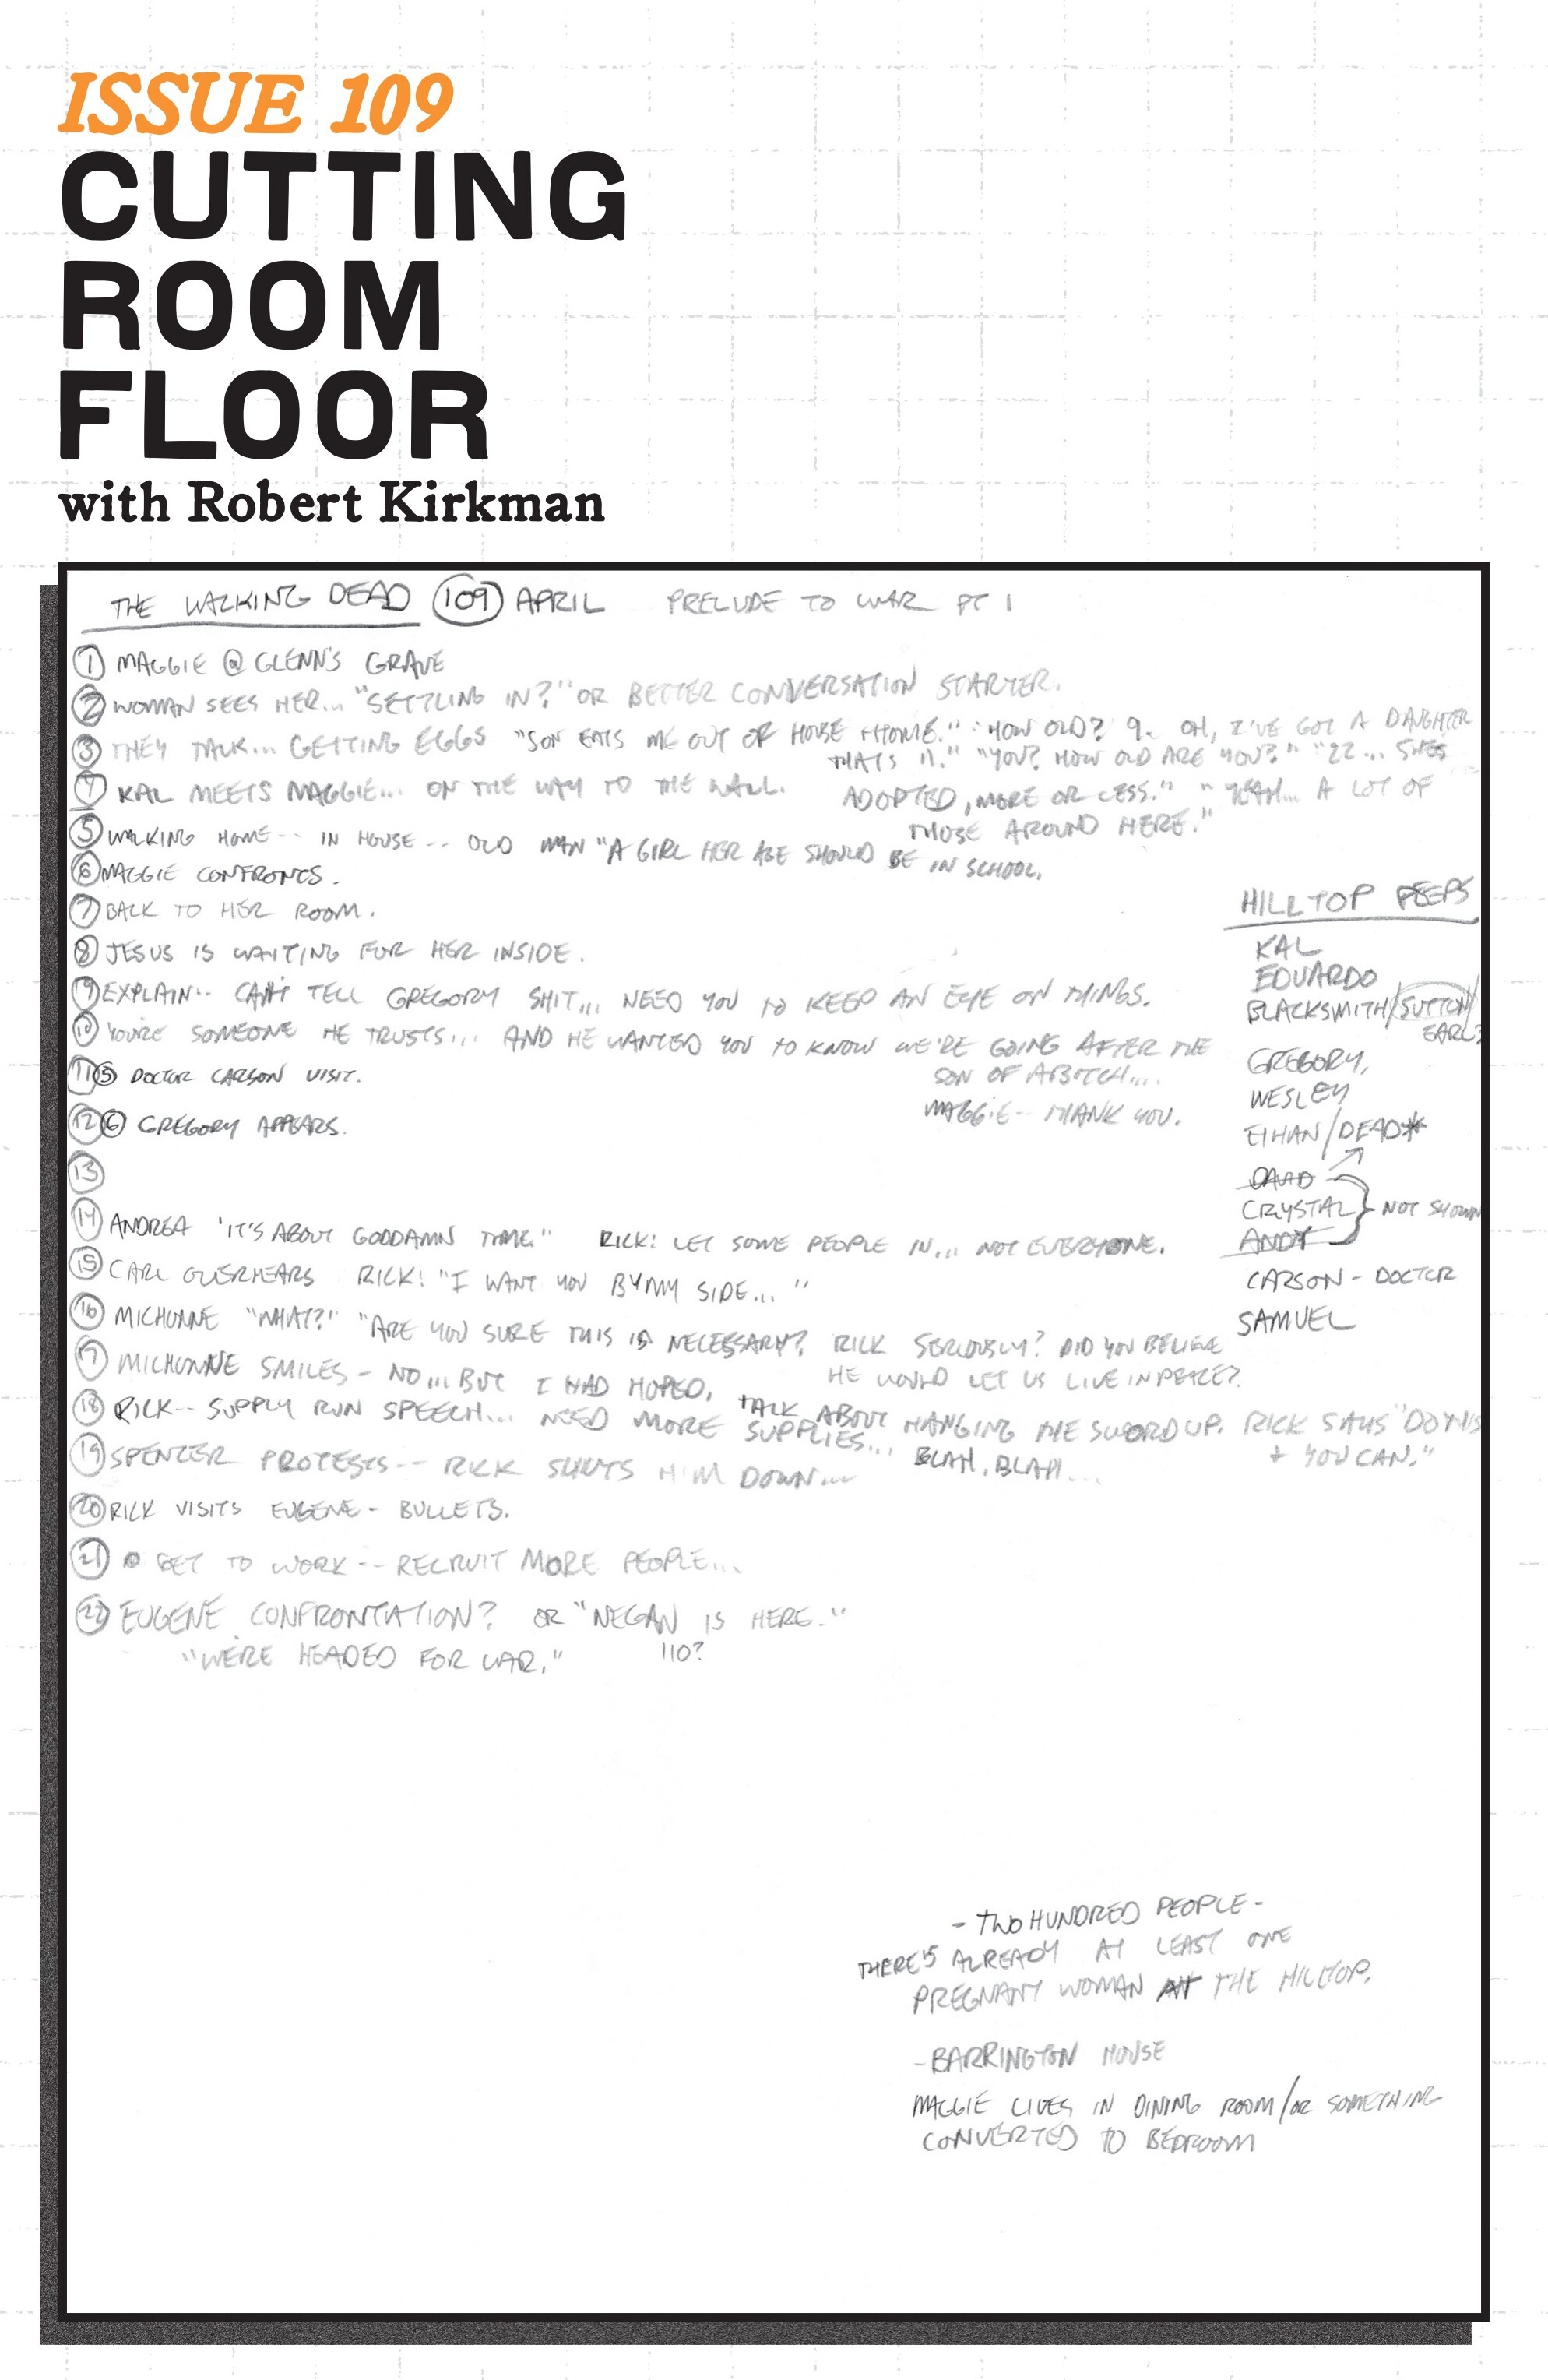 ISSUE 109
CUTTING
ROOM
FLOOR
with Robert Kirkman
THE WALKING DEAD 109 APRIL PRELUDE TO WAR PT 1
1 MAGGIE @ GLENN'S GRAVE
2 WOMAN SEES HER... "SETTLING IN?" OR BETTER CONVERSATION STARTER.
3 THEY TALK... GETTING EGGS "SON EATS ME OUT OF HOUSE + HOME." "HOW OLD? 9. OH, I'VE GOT A DAUGHTER
THATS 11." "YOU? HOW OLD ARE YOU?" "22... SHES
ADOPTED, MORE OR LESS." "YEAH... A LOT OF
THOSE AROUND HERE."
4 KAL MEETS MAGGIE... ON THE WAY TO THE WALL.
5 WALKING HOME -- IN HOUSE -- OLD MAN "A GIRL HER AGE SHOULD BE IN SCHOOL.
6 MAGGIE CONFRONTS.
7 BACK TO HER ROOM.
8 JESUS IS WAITING FOR HER INSIDE.
9 EXPLAIN-- CAN'T TELL GREGORY SHIT... NEED YOU TO KEEP AN EYE ON THINGS.
10 YOU'RE SOMEONE HE TRUSTS... AND HE WANTED YOU TO KNOW WE'RE GOING AFTER THE
SON OF A BITCH....
MAGGIE-- THANK YOU.
11 5 DOCTOR CARSON VISIT.
12 6 GREGORY APPEARS.
13
14 ANDREA 'IT'S ABOUT GODDAMN TIME." RICK: LET SOME PEOPLE IN... NOT EVERYONE.
15 CARL OVERHEARS RICK: "I WANT YOU BY MY SIDE..."
16 MICHONNE "WHAT?" "ARE YOU SURE THIS IS NECESSARY? RICK SERIOUSLY? DID YOU BELIEVE
HE WOULD LET US LIVE IN PEACE?
17 MICHONNE SMILES - NO... BUT I HAD HOPED, TALK ABOUT HANGING THE SWORD UP. RICK SAYS "DO THIS
+ YOU CAN."
18 RICK-- SUPPLY RUN SPEECH... NEED MORE SUPPLIES... BLAH, BLAH...
19 SPENCER PROTESTS -- RICK SHUTS HIM DOWN...
20 RICK VISITS EUGENE - BULLETS.
21 GET TO WORK -- RECRUIT MORE PEOPLE...
22 EUGENE CONFRONTATION? OR "NEGAN IS HERE."
"WE'RE HEADED FOR WAR." 110?
HILLTOP PEEPS
KAL
EDUARDO
BLACKSMITH/SUTTON/
EARL?
GREGORY,
WESLEY
ETHAN/DEAD*
DAVID
CRYSTAL NOT SHOWN
ANDY
CARSON - DOCTOR
SAMUEL
- TWO HUNDRED PEOPLE -
THERE'S ALREADY AT LEAST ONE
PREGNANT WOMAN AT THE HILLTOP.
- BARRINGTON HOUSE
MAGGIE LIVES IN DINING ROOM/OR SOMETHING
CONVERTED TO BEDROOM